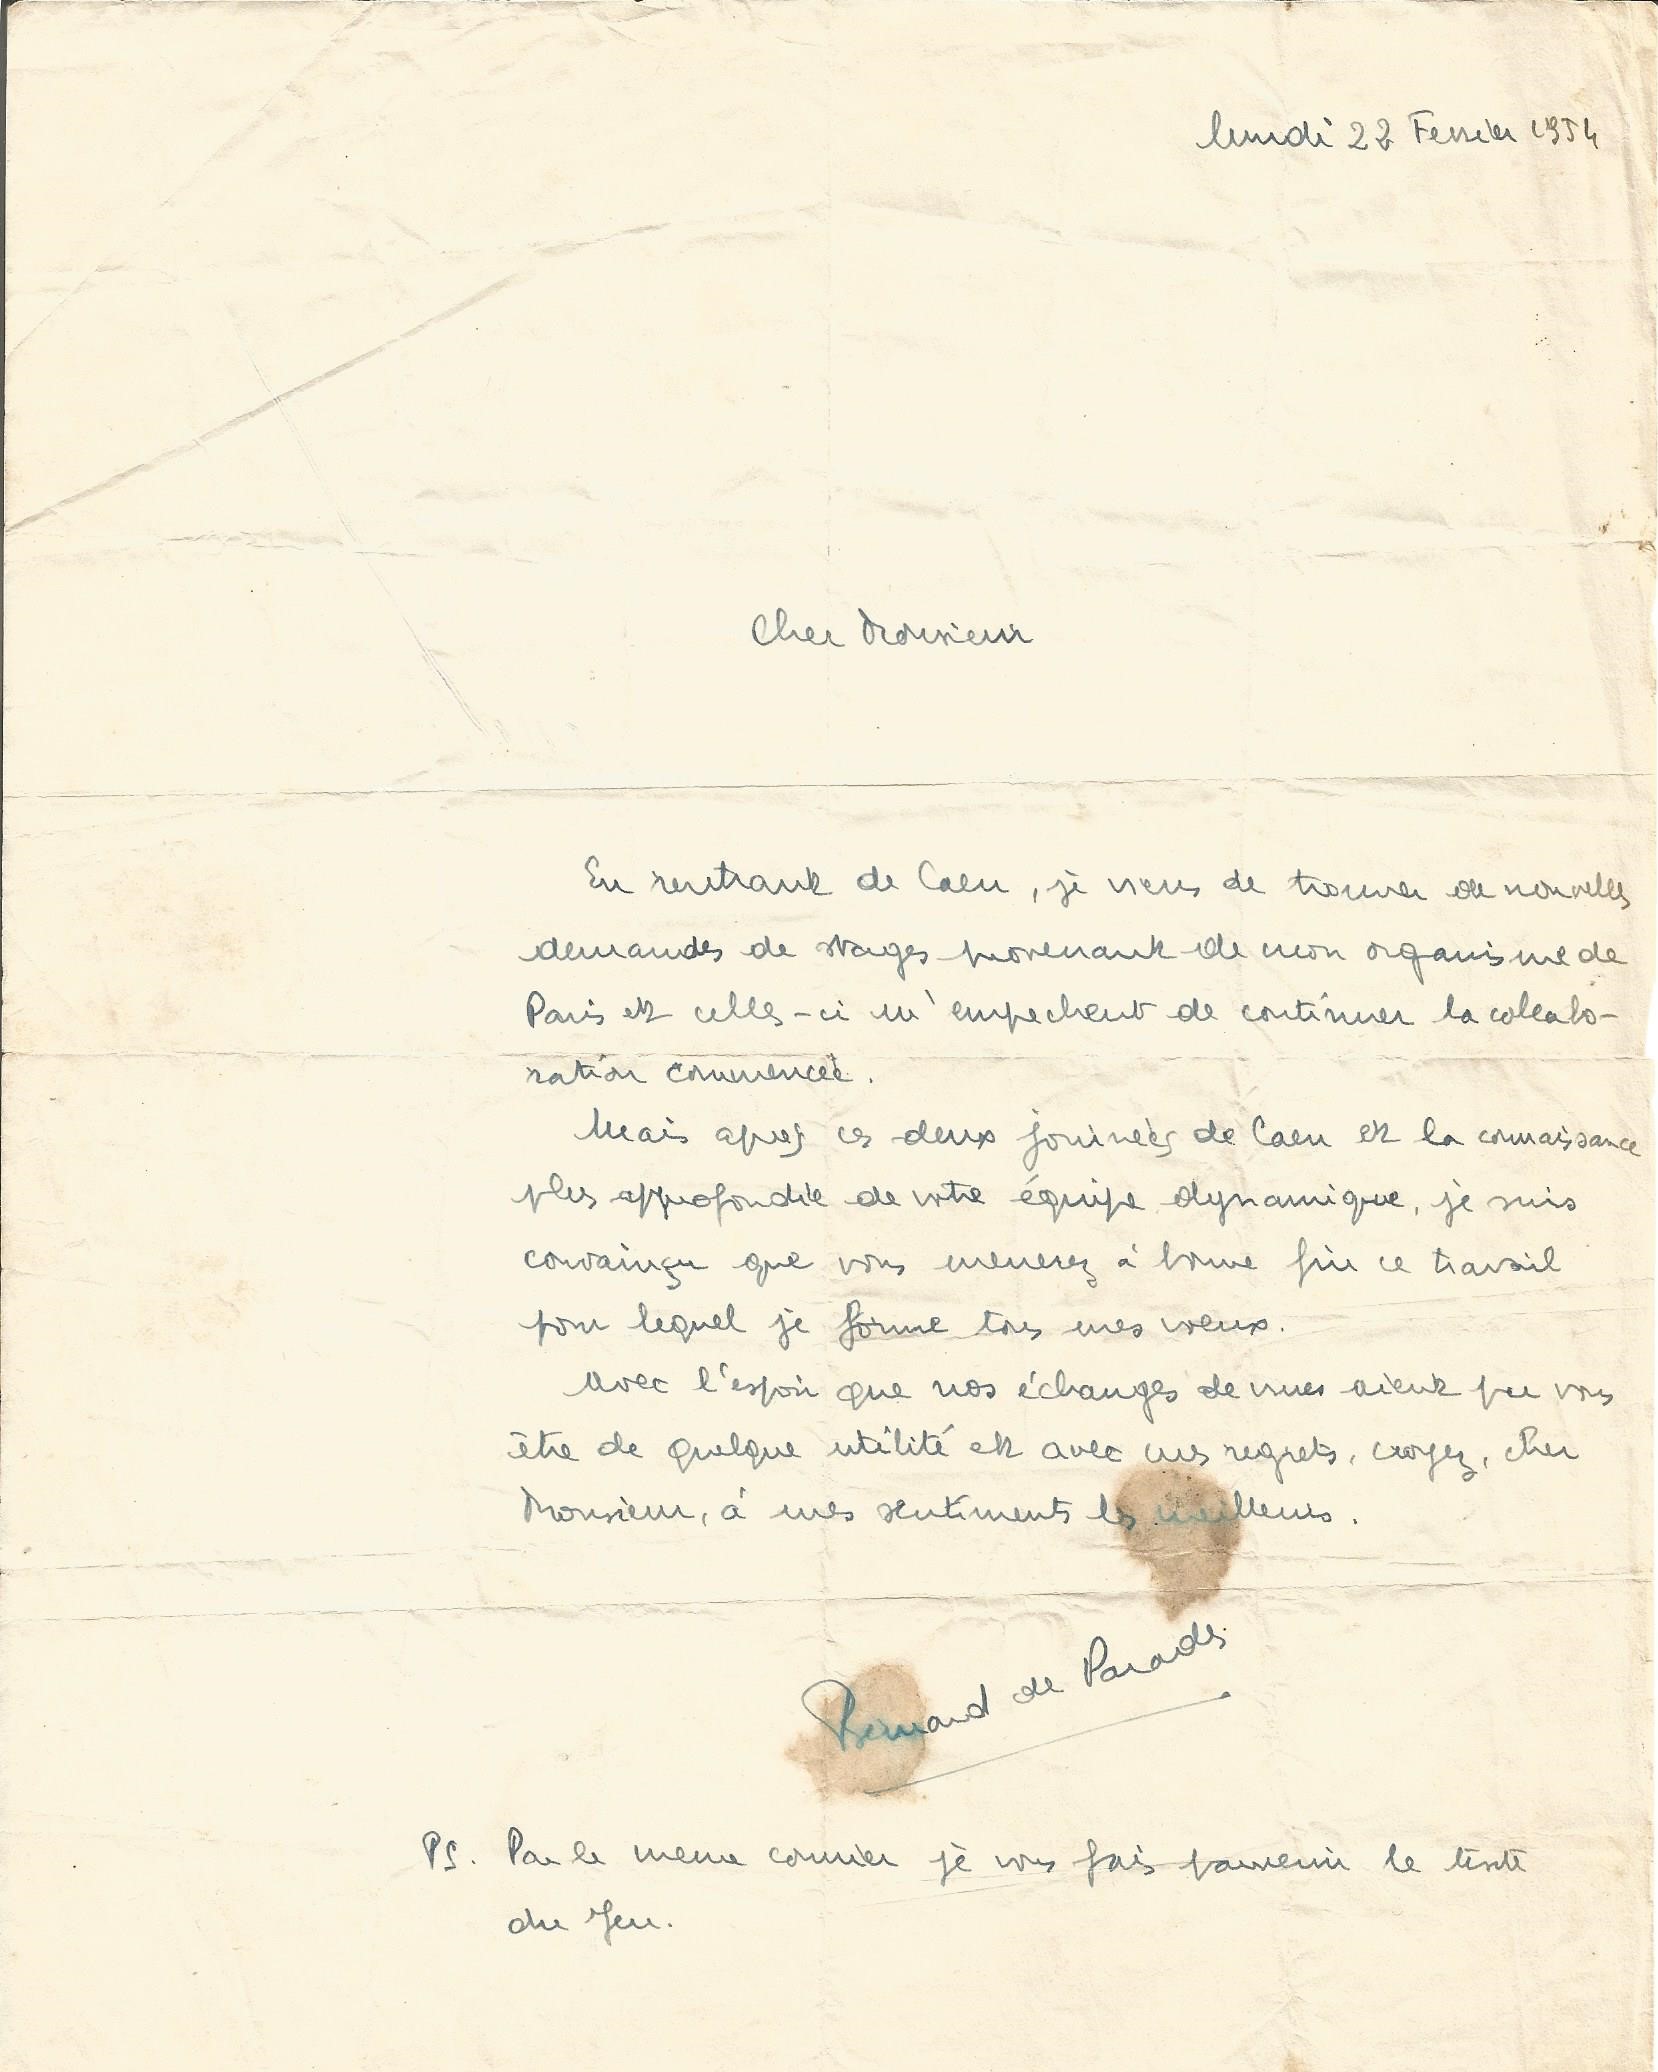 lundi 22 Fevrier 1954
Cher Monsieur
En rentrant de Caen, je viens de trouver de nouvelles
demandes de stages provenant de mon organisme de
Paris et celles-ci m'empechent de continuer la collabo-
ration commencée.
Mais après ces deux journées de Caen et la connaissance
plus approfondie de votre équipe dynamique, je suis
convaincu que vous menerez à bonne fin ce travail
pour lequel je forme tous mes voeux.
Avec l'espoir que nos échanges de vues aient pu vous
être de quelque utilité et avec mes regrets, croyez, cher
Monsieur, à mes sentiments les meilleurs.
Bernard de Parades
PS. Par le meme courrier je vous fais parvenir le texte
du Jeu.